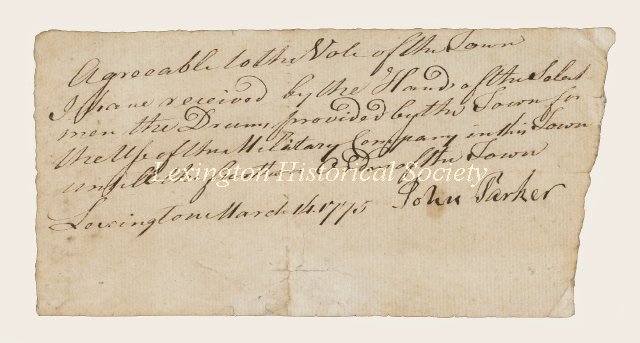 Agreeable to the Vote of the Town
I have received by the Hands of the Select
men the Drum provided by the Town for
the Use of the Military Company in this Town
untill the further Order of the Town
Lexington March 14 1775 John Parker
Lexington Historical Society